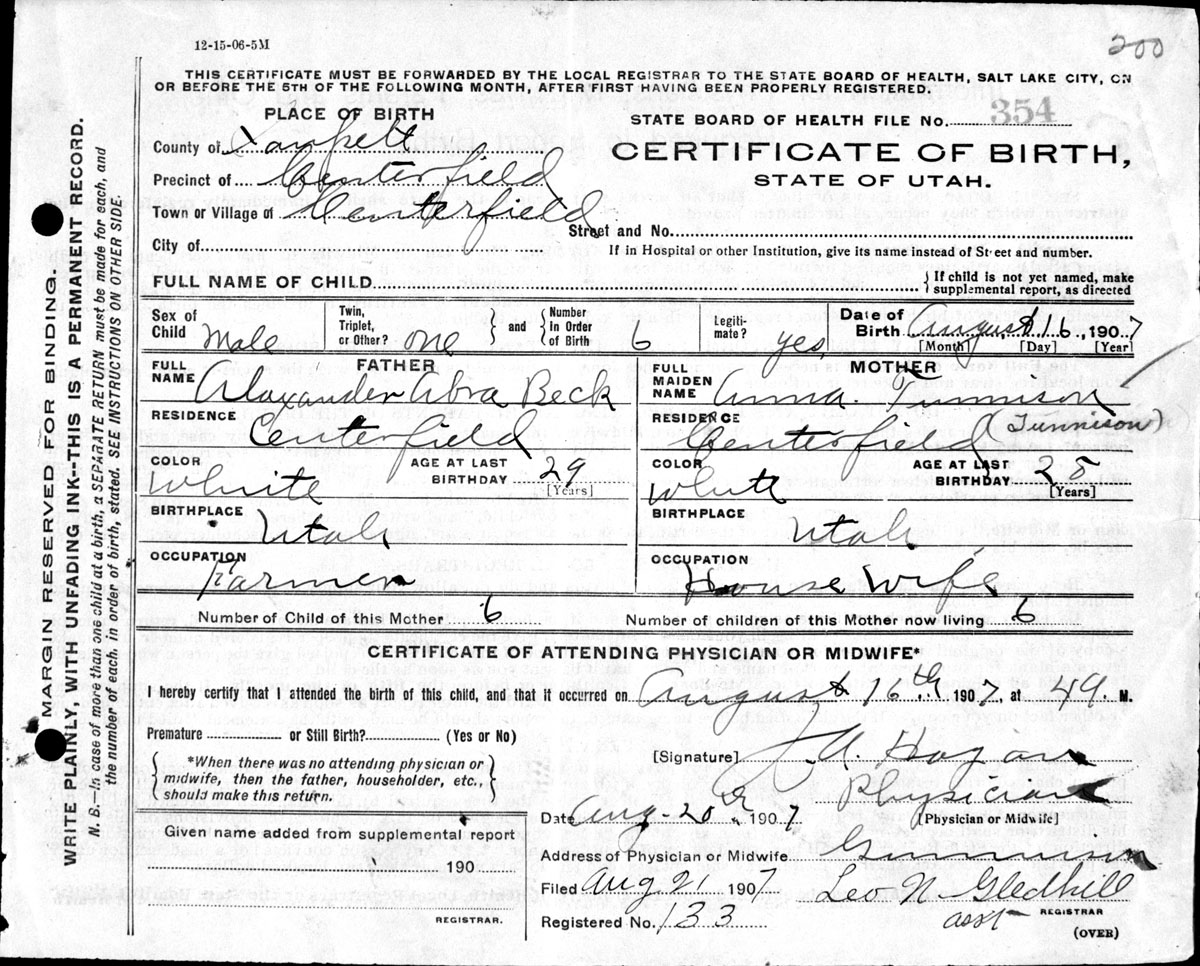 12-15-06-5M
200
THIS CERTIFICATE MUST BE FORWARDED BY THE LOCAL REGISTRAR TO THE STATE BOARD OF HEALTH, SALT LAKE CITY, ON
OR BEFORE THE 5TH OF THE FOLLOWING MONTH, AFTER FIRST HAVING BEEN PROPERLY REGISTERED.
PLACE OF BIRTH
STATE BOARD OF HEALTH FILE NO. 354
County of Sanpete
CERTIFICATE OF BIRTH,
Precinct of Centerfield
STATE OF UTAH.
Town or Village of Centerfield
Street and No.
City of
If in Hospital or other Institution, give its name instead of Street and number.
FULL NAME OF CHILD
{ If child is not yet named, make
supplemental report, as directed
Sex of Child Male
Twin, Triplet, or Other? one
{ and } { Number In Order of Birth 6
Legiti- mate? yes
Date of Birth August 16, 1907
[Month] [Day] [Year]
FATHER
FULL NAME Alexander Abra Beck
RESIDENCE
Centerfield
COLOR White
AGE AT LAST BIRTHDAY 29
[Years]
BIRTHPLACE
Utah
OCCUPATION
Farmer
MOTHER
FULL MAIDEN NAME Anna
RESIDENCE
Centerfield
COLOR White
AGE AT LAST BIRTHDAY
[Years]
BIRTHPLACE
Utah
OCCUPATION
House wife
Number of Child of this Mother 6
Number of children of this Mother now living 6
CERTIFICATE OF ATTENDING PHYSICIAN OR MIDWIFE*
I hereby certify that I attended the birth of this child, and that it occurred on August 16th 1907, at M.
Premature or Still Birth? (Yes or No)
{ *When there was no attending physician or
midwife, then the father, householder, etc.,
should make this return. }
[Signature] A. Hagan
Physician
Date Aug-20th 1907
[Physician or Midwife]
Given name added from supplemental report
190
REGISTRAR.
Address of Physician or Midwife Gunnison
Filed Aug 21 1907 Leo N Gledhill
asst REGISTRAR
Registered No. 133
(OVER)
MARGIN RESERVED FOR BINDING.
WRITE PLAINLY, WITH UNFADING INK--THIS IS A PERMANENT RECORD.
N. B.—In case of more than one child at a birth, a SEPARATE RETURN must be made for each, and
the number of each, in order of birth, stated. SEE INSTRUCTIONS ON OTHER SIDE.